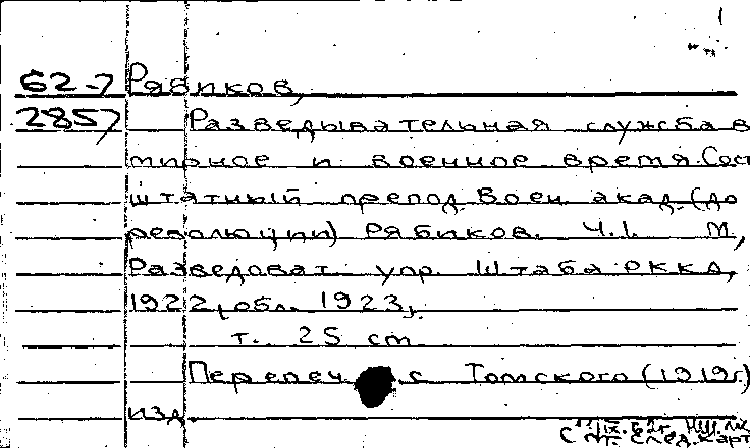 62-7 Рябиков,
2857 Разведывательная служба в
мирное и военное время. Сост
штатный препод. Воен. акад. (до
революции) Рябиков. Ч.1. М,
Разведоват. упр. Штаба РККА,
1922, обл. 1923,
т. 25 cm
Перепеч. с Томского (1919г)
изд.
См. след. карт